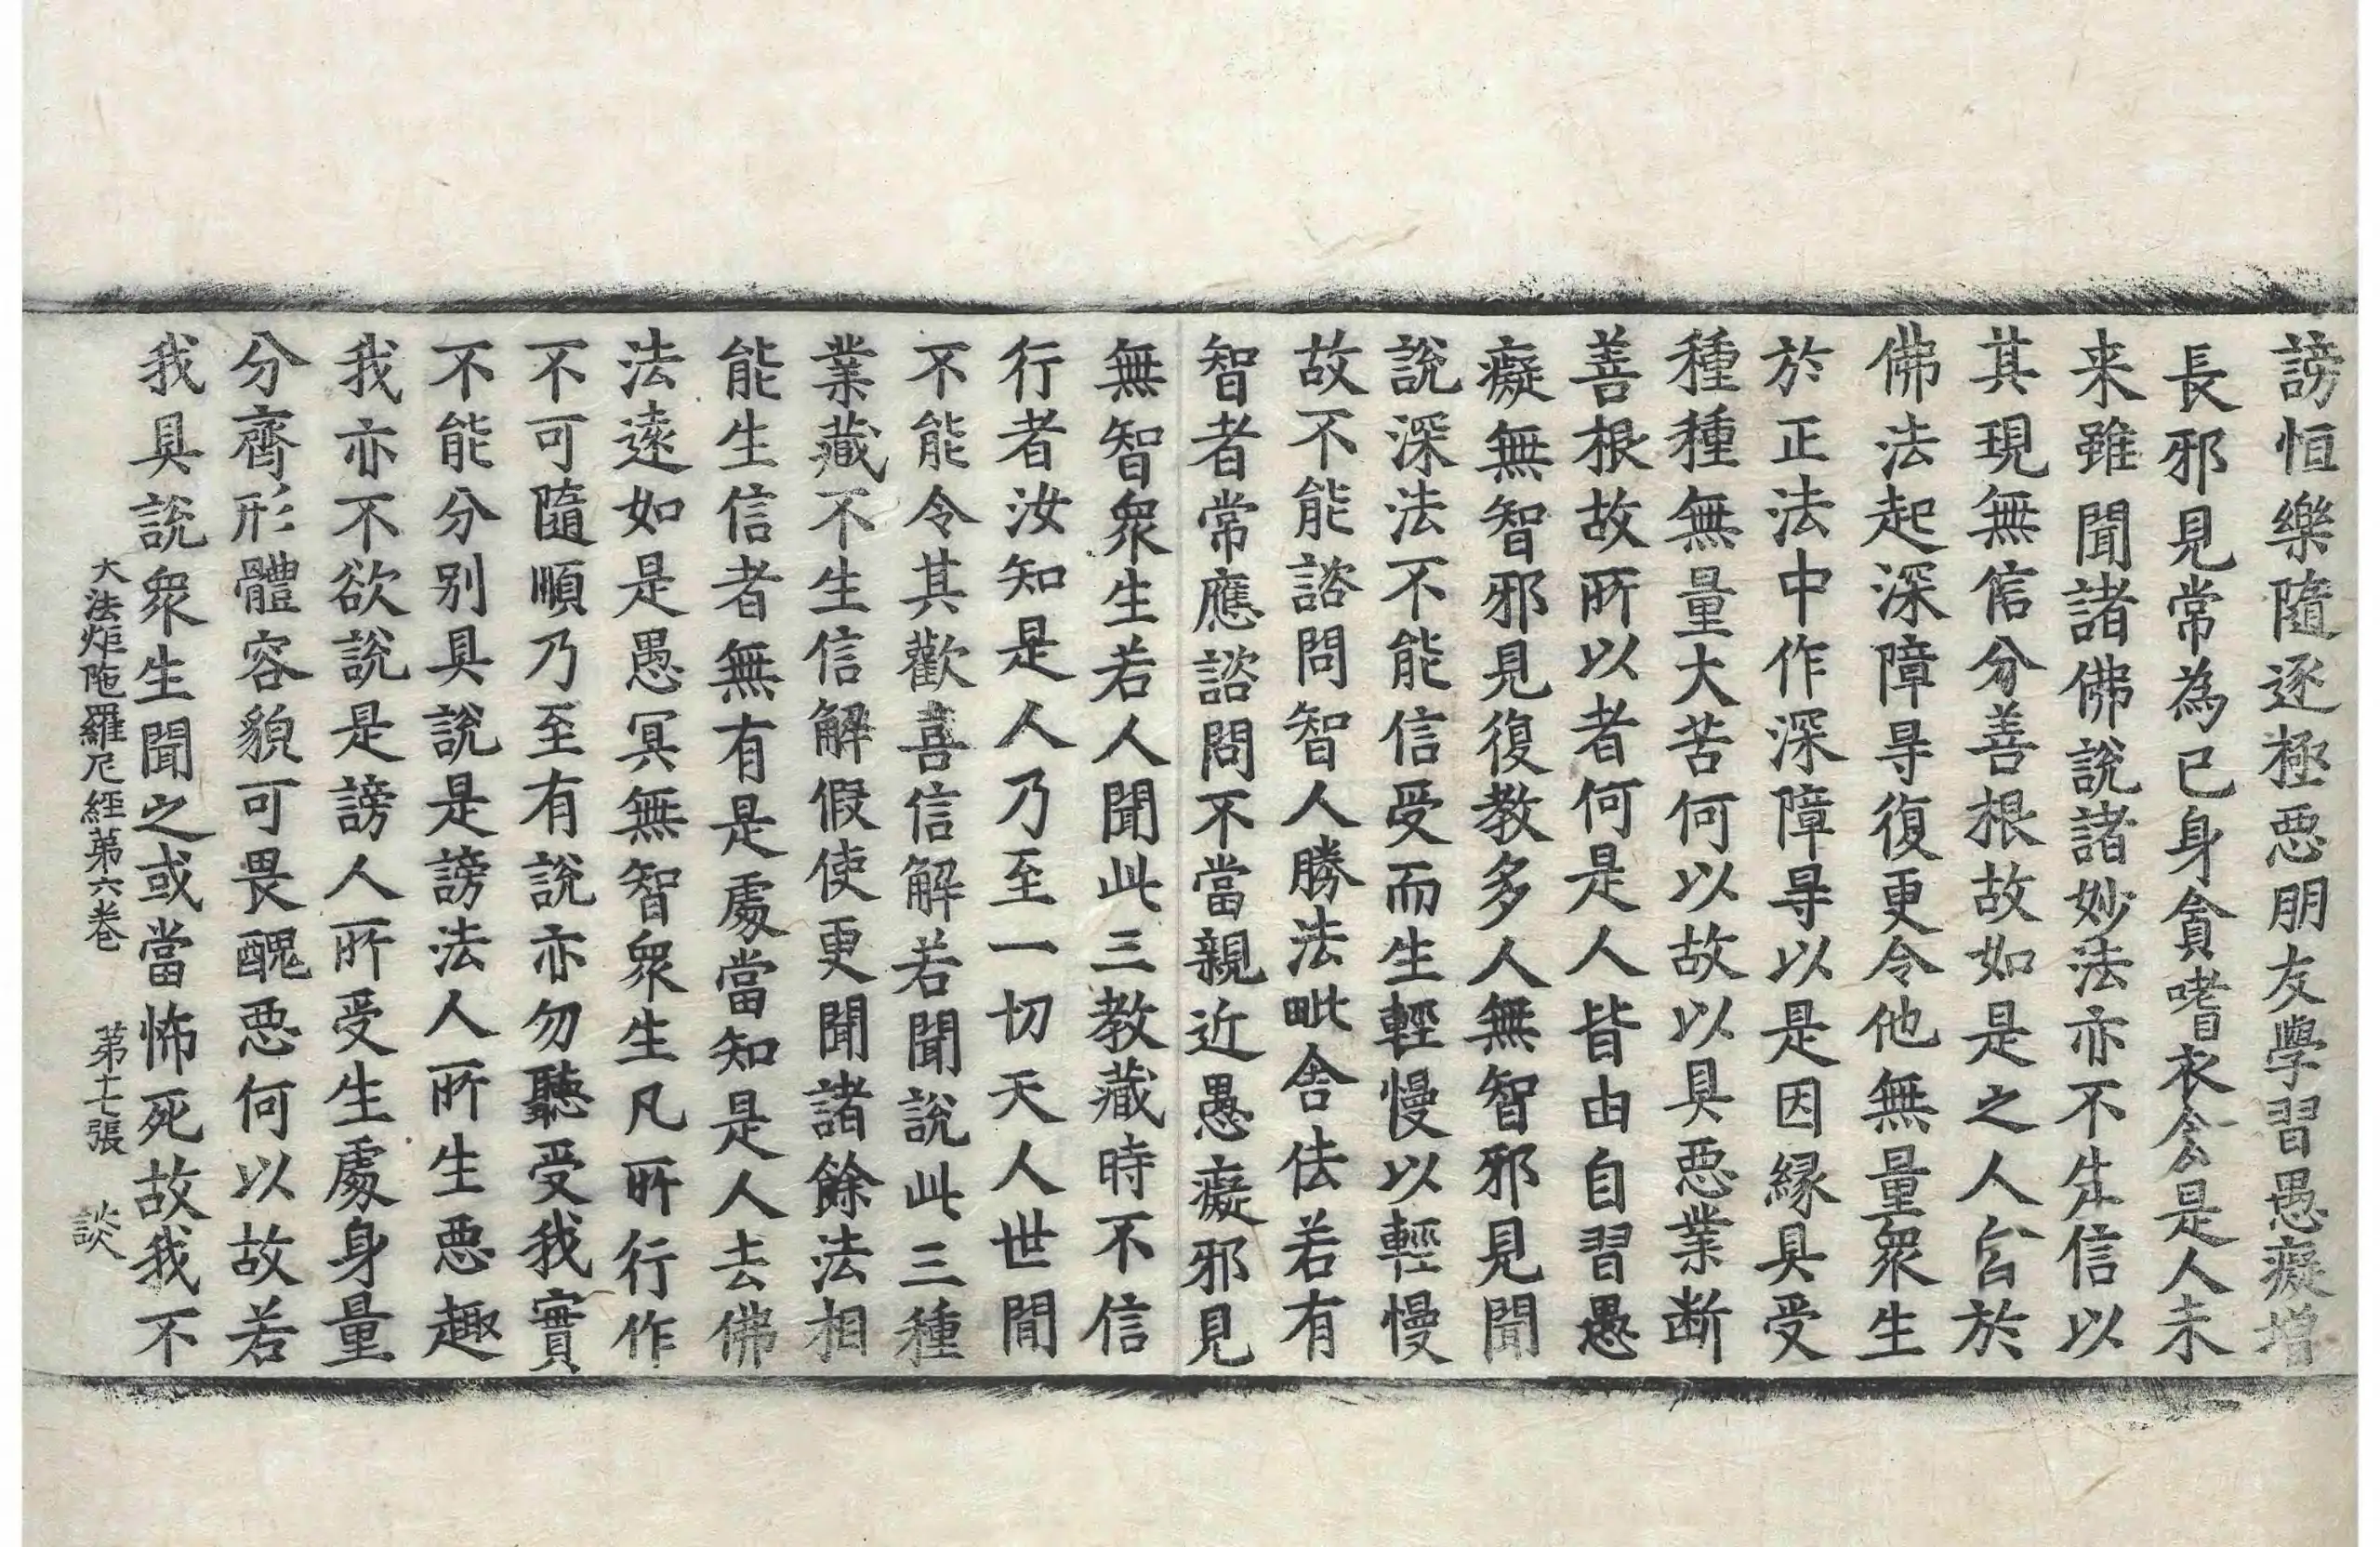 謗恒樂隨逐極惡朋友學習愚癡增
長邪見常為已身貪嗜衣食是人未
来雖聞諸佛說諸妙法亦不生信以
其現無信分善根故如是之人皆於
佛法起深障㝵復更令他無量衆生
於正法中作深障㝵以是因縁具受
種種無量大苦何以故以具惡業断
善根故所以者何是人皆由自習愚
癡無智邪見復教多人無智邪見聞
說深法不能信受而生輕慢以輕慢
故不能諮問智人勝法毗舍佉若有
智者常應諮問不當親近愚癡邪見
無智衆生若人聞此三教藏時不信
行者汝知是人乃至一切天人世間
不能令其歡喜信解若聞說此三種
業藏不生信解假使更聞諸餘法相
能生信者無有是處當知是人去佛
法遠如是愚冥無智衆生凡所行作
不可隨順乃至有說亦勿聽受我實
不能分别具說是謗法人所生惡趣
我亦不欲說是謗人所受生處身量
分齊形體容貌可畏醜惡何以故若
我具說衆生聞之或當怖死故我不
大法炬陁羅尼經第六卷 第十七張 談